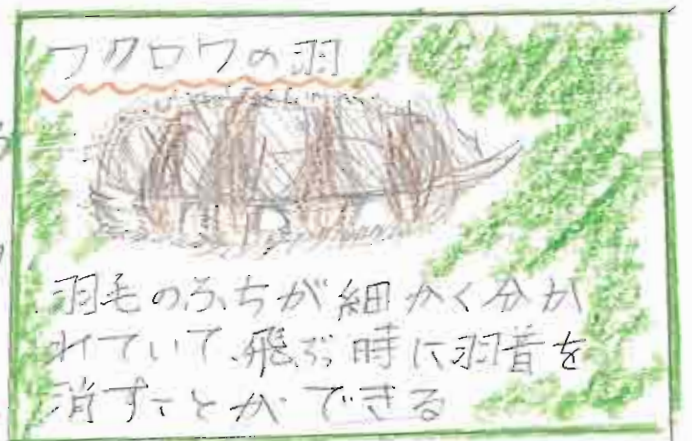 フクロウの羽
羽毛のふちが細かく分か
れていて、飛ぶ時に羽音を
消すことができる